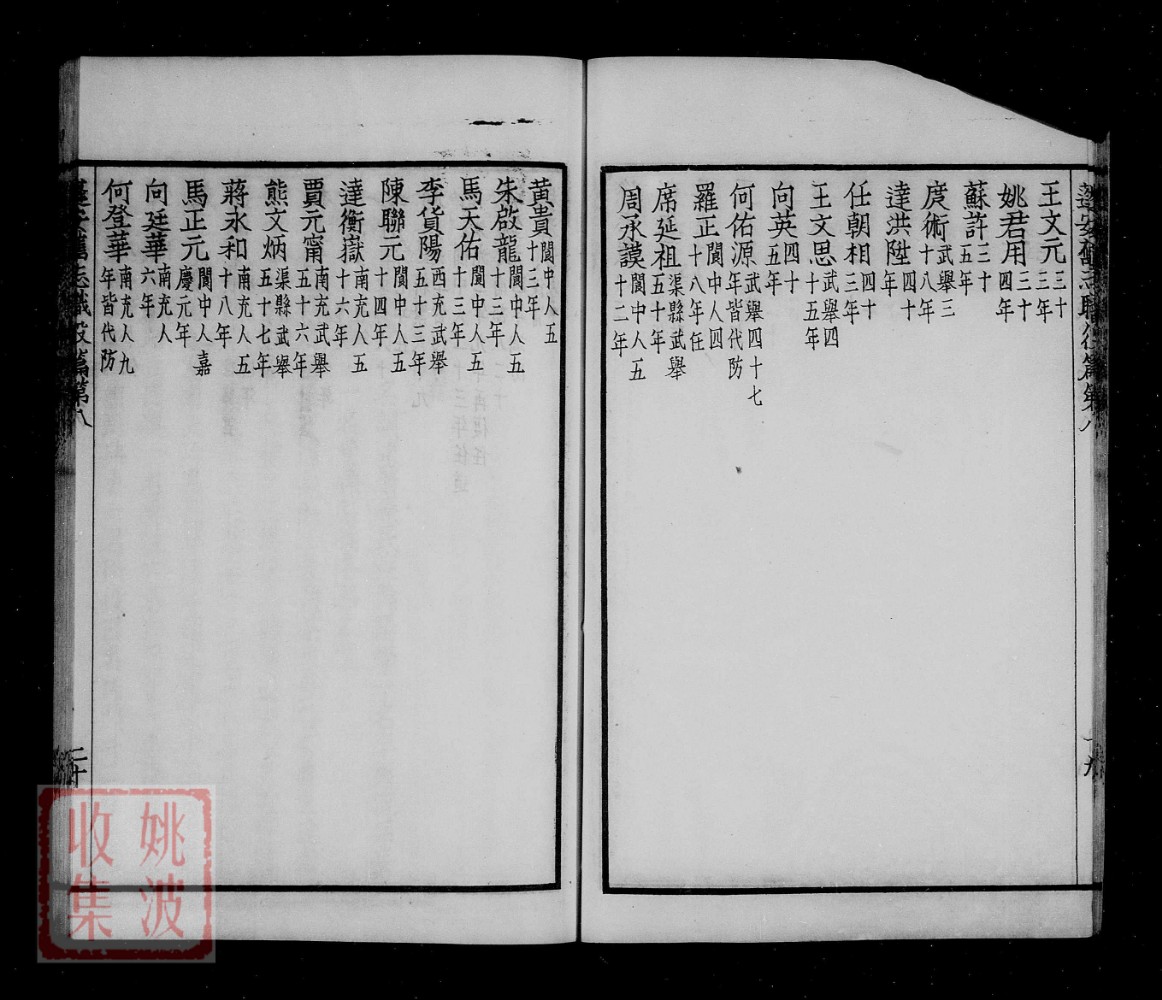 志職役篇第八
十九
王文元三十三年
姚君用三十四年
蘇許三十五年
庹術武舉三十八年
達洪陞四十年
任朝相四十三年
王文思武舉四十五年
向英四十五年
何佑源武舉四十七年皆代防
羅正閬中人四十八年任
席延祖渠縣武舉五十年
周承謨閬中人五十二年
黃貴閬中人五十三年
朱啟龍閬中人五十三年
馬天佑閬中人五十三年
李貨陽西充武舉五十三年
陳聯元閬中人五十四年
達衡嶽南充人五十六年
賈元甯南充武舉五十六年
熊文炳渠縣武舉五十七年
蔣永和南充人五十八年
馬正元閬中人嘉慶元年
向廷華南充人六年
何登華南充人九年皆代防
舊志職役篇第八
二十
姚波
收集